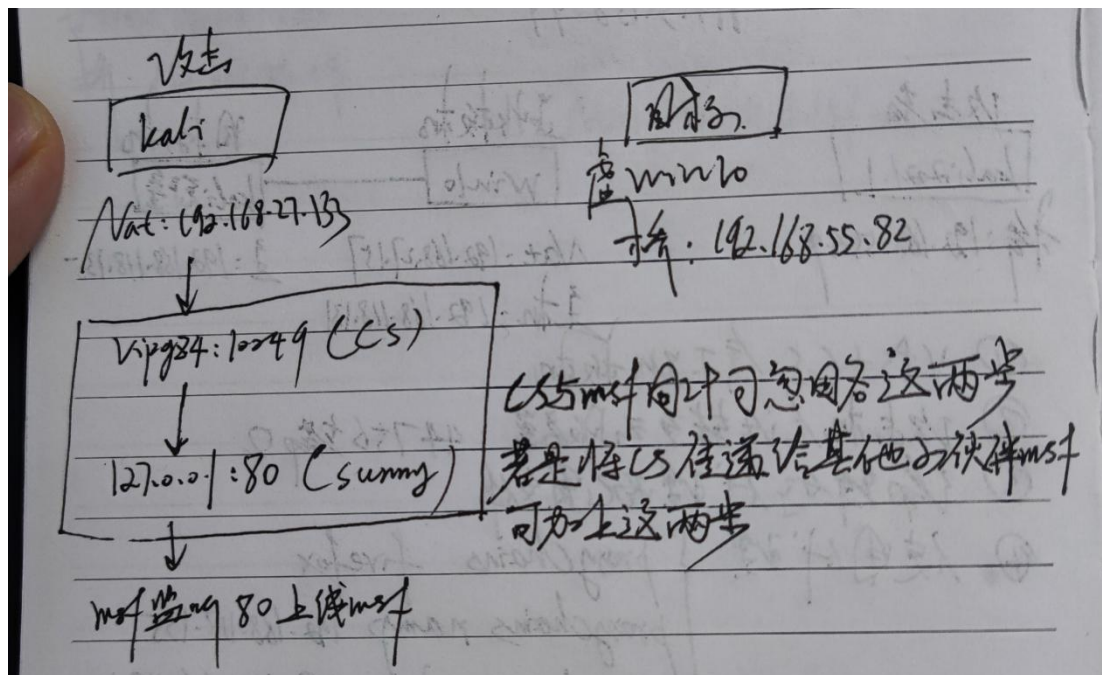 攻击
kali
Nat: 192.168.27.133
vipgz4:10249 (CS)
127.0.0.1:80 (sunny)
msf监听 80 上线msf
win10
桥: 192.168.55.82
CS与msf同计可忽略这两步
若是将CS传递给其他小伙伴msf
可加上这两步